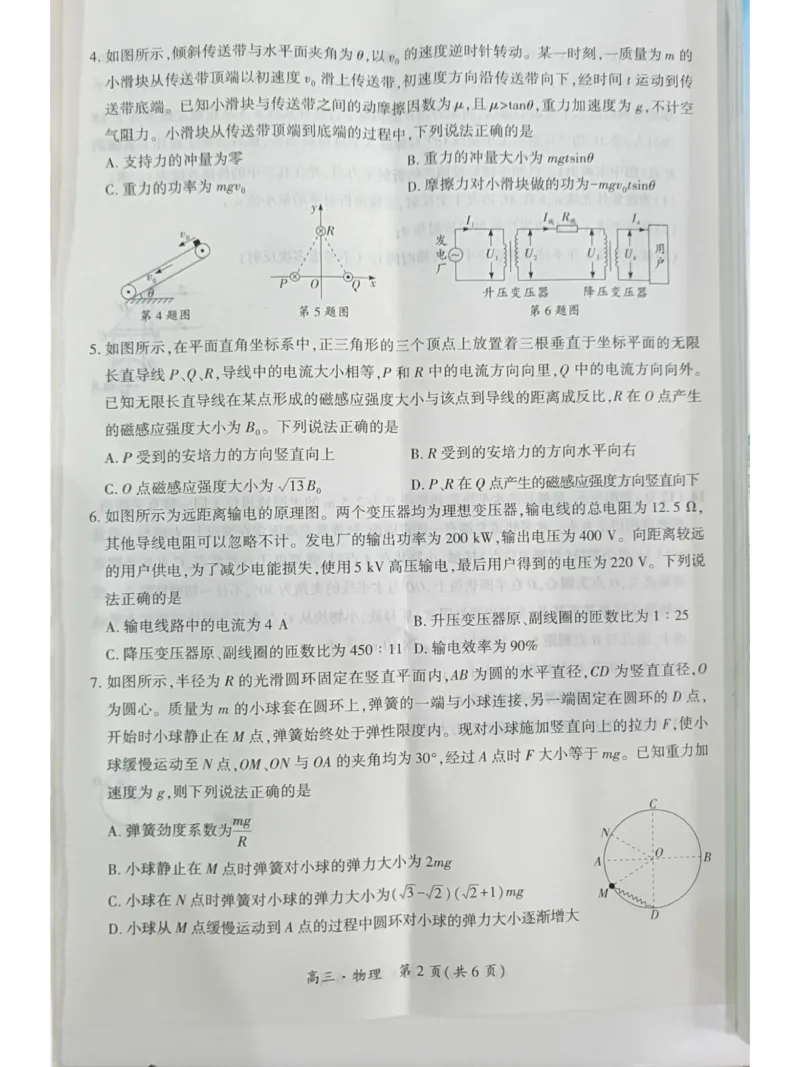 4. 如图所示,倾斜传送带与水平面夹角为θ,以v₀的速度逆时针转动。某一时刻,一质量为m的
小滑块从传送带顶端以初速度v₀滑上传送带,初速度方向沿传送带向下,经时间t运动到传
送带底端。已知小滑块与传送带之间的动摩擦因数为μ,且μ>tanθ,重力加速度为g,不计空
气阻力。小滑块从传送带顶端到底端的过程中,下列说法正确的是
A. 支持力的冲量为零 B. 重力的冲量大小为mgtsinθ
C. 重力的功率为mgv₀ D. 摩擦力对小滑块做的功为-mgv₀tsinθ
v₀ v₀ θ
第4题图
y R P O Q x
第5题图
发电厂 I₁ U₁ U₂ I线 R线 U₃ U₄ I₄ 用户
升压变压器 降压变压器
第6题图
5. 如图所示,在平面直角坐标系中,正三角形的三个顶点上放置着三根垂直于坐标平面的无限
长直导线P、Q、R,导线中的电流大小相等,P和R中的电流方向向里,Q中的电流方向向外。
已知无限长直导线在某点形成的磁感应强度大小与该点到导线的距离成反比,R在O点产生
的磁感应强度大小为B₀。下列说法正确的是
A. P受到的安培力的方向竖直向上 B. R受到的安培力的方向水平向右
C. O点磁感应强度大小为√13B₀ D. P、R在Q点产生的磁感应强度方向竖直向下
6. 如图所示为远距离输电的原理图。两个变压器均为理想变压器,输电线的总电阻为12.5 Ω,
其他导线电阻可以忽略不计。发电厂的输出功率为200 kW,输出电压为400 V。向距离较远
的用户供电,为了减少电能损失,使用5 kV高压输电,最后用户得到的电压为220 V。下列说
法正确的是
A. 输电线路中的电流为4 A B. 升压变压器原、副线圈的匝数比为1∶25
C. 降压变压器原、副线圈的匝数比为450∶11 D. 输电效率为90%
7. 如图所示,半径为R的光滑圆环固定在竖直平面内,AB为圆的水平直径,CD为竖直直径,O
为圆心。质量为m的小球套在圆环上,弹簧的一端与小球连接,另一端固定在圆环的D点,
开始时小球静止在M点,弹簧始终处于弹性限度内。现对小球施加竖直向上的拉力F,使小
球缓慢运动至N点,OM、ON与OA的夹角均为30°,经过A点时F大小等于mg。已知重力加
速度为g,则下列说法正确的是
A. 弹簧劲度系数为mg/R
B. 小球静止在M点时弹簧对小球的弹力大小为2mg
C. 小球在N点时弹簧对小球的弹力大小为(√3-√2)(√2+1)mg
D. 小球从M点缓慢运动到A点的过程中圆环对小球的弹力大小逐渐增大
C N A O B M D
高三·物理 第2页(共6页)